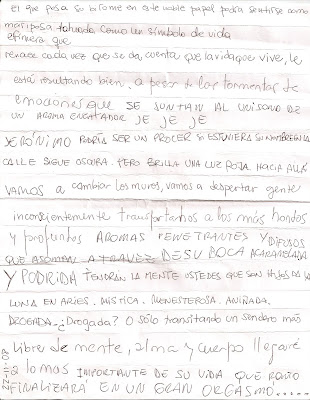 el que posa su birome en este noble papel podría sentirse como
mariposa tatuada como un símbolo de vida
efímera que
renace cada vez que se da, cuenta que la vida que vive, le
está resultando bien, a pesar de las tormentas de
emociones que SE JUNTAN AL UNISONO DE
UN AROMA ENCANTADOR JE JE JE
JERÓNIMO PODRÍA SER UN PROCER SI ESTUVIERA SU NOMBRE EN LA
CALLE SIGUE OSCURA. PERO BRILLA UNA LUZ ROJA HACIA ALLÁ
VAMOS a cambiar los muros, vamos a despertar gente
inconscientemente transportarnos a los más hondos
y profundos AROMAS PENETRANTES Y DIFUSOS
QUE ASOMAN A TRAVEZ DE SU BOCA ACARAMELADA
Y PODRIDA TENDRAN LA MENTE USTEDES QUE SON HIJOS DE LA
LUNA EN ARIES. MISTICA. MENESTEROSA. ANIÑADA.
DROGADA. ¿Drogada? O sólo transitando un sendero más
libre de mente, alma y cuerpo llegará
a lo MAS IMPORTANTE DE SU VIDA QUE PRONTO
FINALIZARÁ EN UN GRAN ORGASMO......
22-11-08